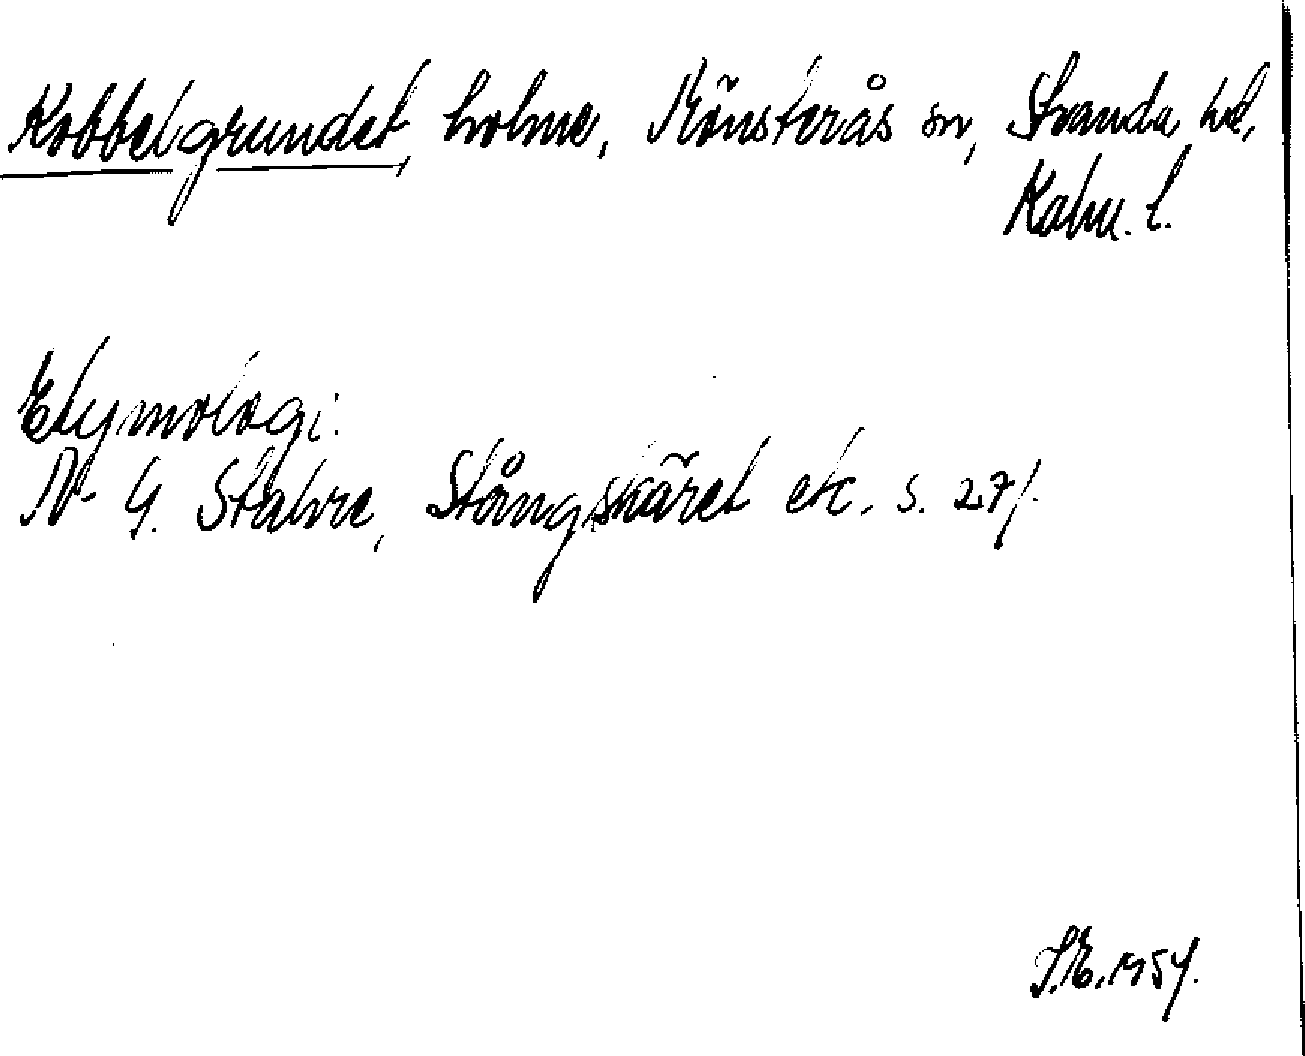 Kobbelgrundet, holme, Mönsterås sn, Stranda hd,
Kalm. l.
Etymologi:
N- G. Stahre, Stångskäret etc. s. 27f.
S.E. 1954.